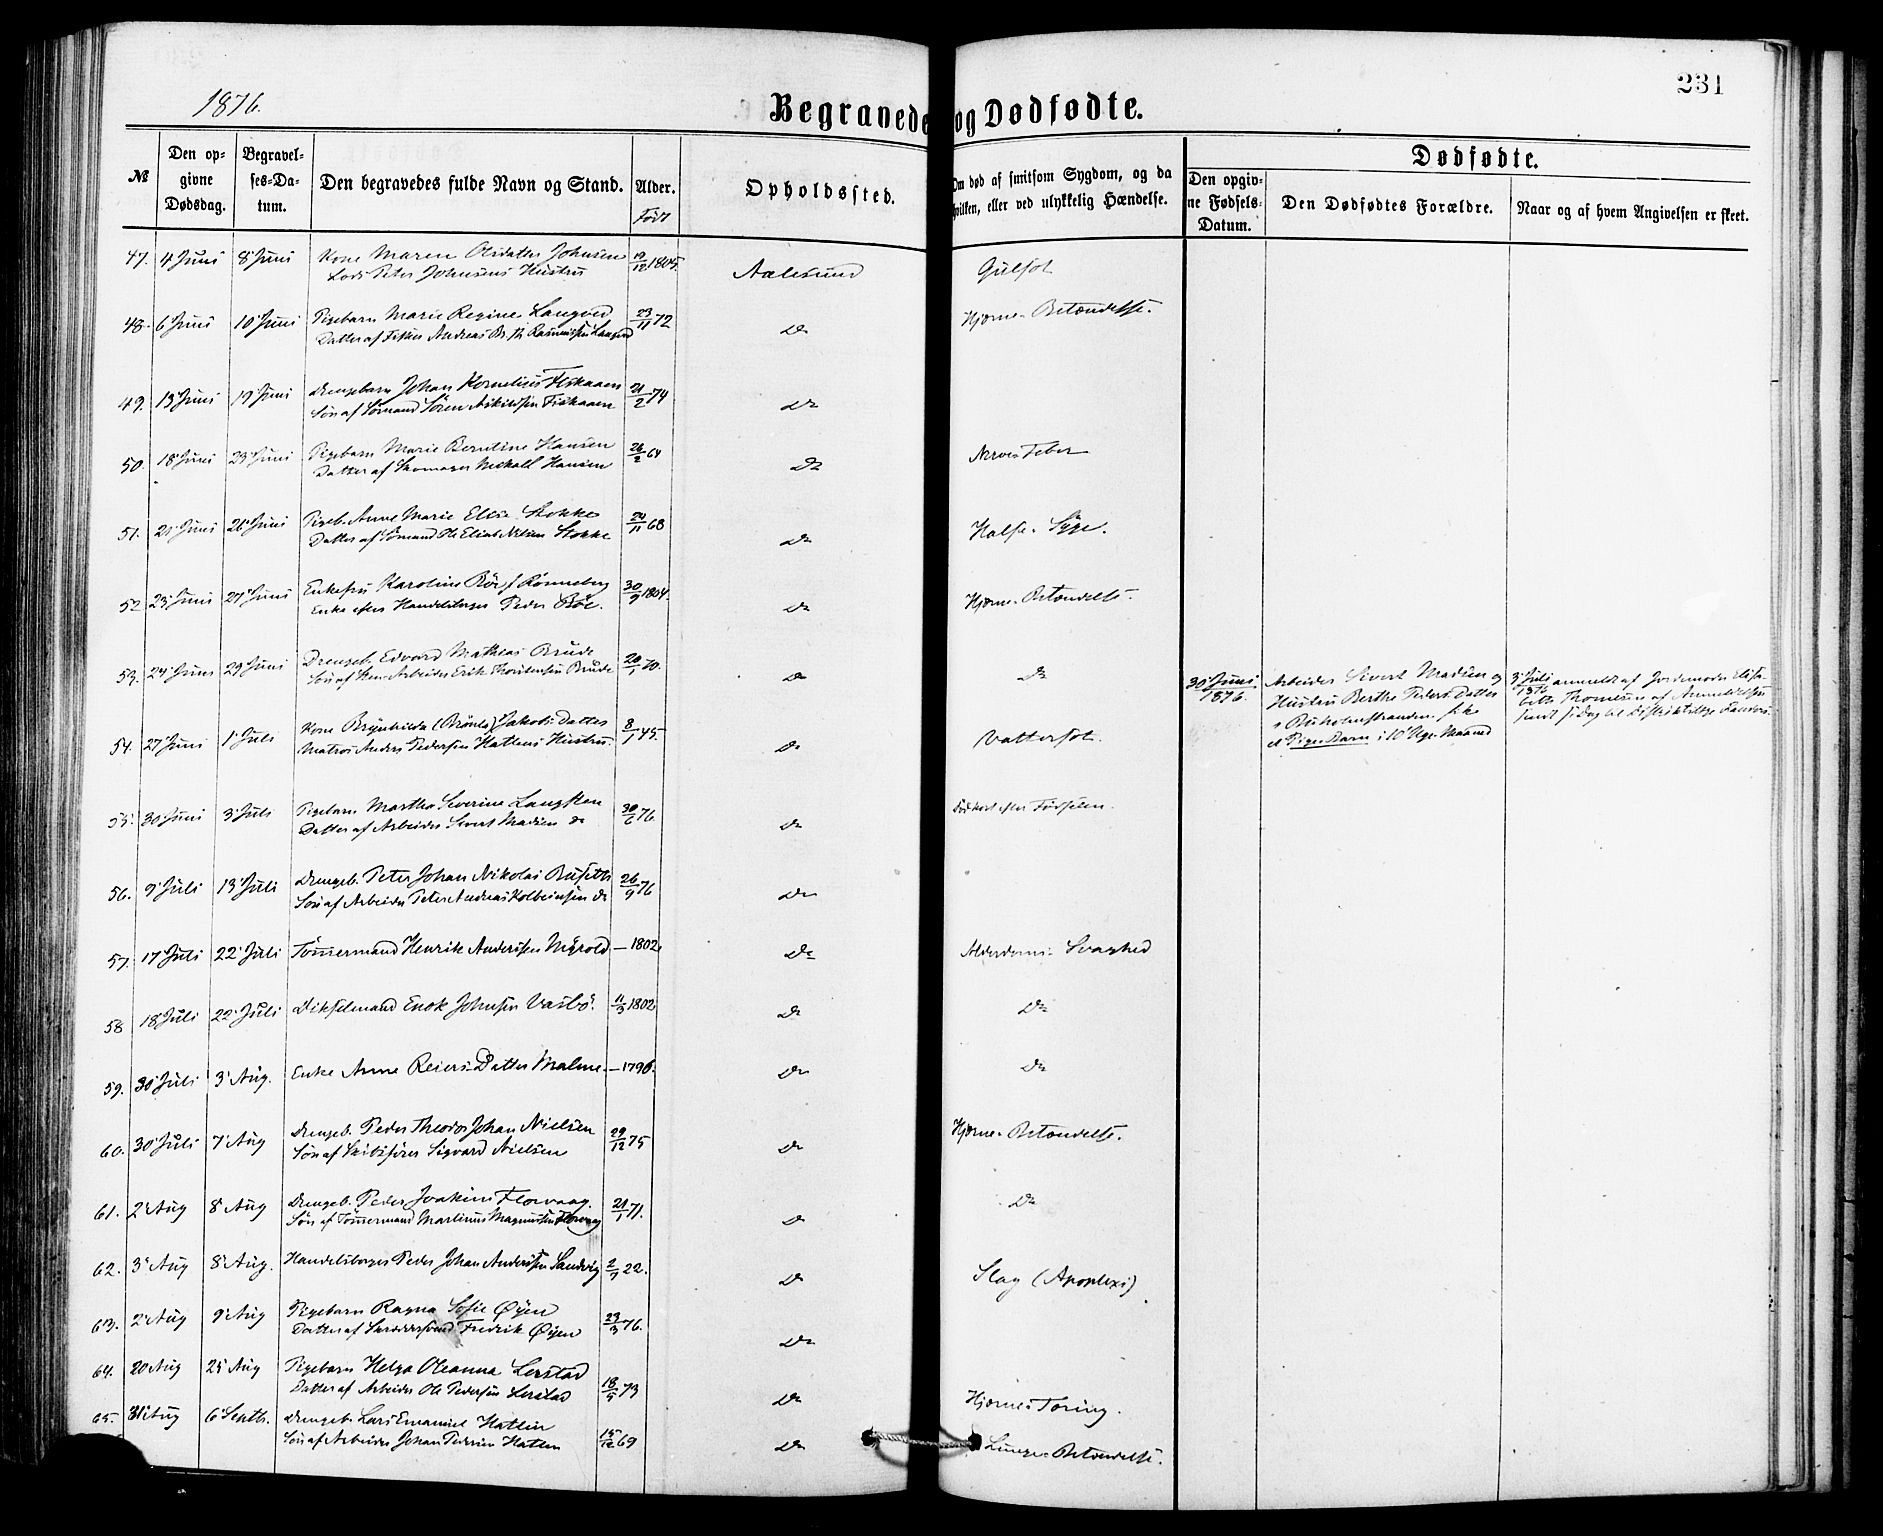 1876.
Begravede og Dødfødte.
231
№
Den op-
givne
Dødsdag.
Begravel-
ses-Da-
tum.
Den begravedes fulde Navn og Stand.
Alder.
Født
Opholdssted.
Om død af smitsom Sygdom, og da
hvilken, eller ved ulykkelig Hændelse.
Dødfødte.
Den opgiv-
ne Fødsels-
Datum.
Den Dødfødtes Forældre.
Naar og af hvem Angivelsen er skeet.
47. 4 Juni 8 Juni Kone Maren Olsdatter Johnsen 19/12 1805. Aalesund Gulsot
Lods Peter Johnsens Hustru
48. 6 Juni 10 Juni Pigebarn Marie Regine Langved 23/11 72 Do Hjerne-Betændelse.
Datter af Fisker Andreas Rasmussen Langved
49. 13 Juni 19 Juni Drengebarn Johan Kornelius Fiskaaen 21/2 74 Do
Søn af Sømand Sören Fiskaaen
50. 18 Juni 23 Juni Pigebarn Marie Berntine Hansen 26/2 64 Do Nerve Feber
Datter af Skomager Hansen
51. 21 Juni 26 Juni Pigeb. Anne Marie Elise Stokke 29/11 68 Do Halse-Syge.
Datter af Sømand Ole Elias Nilsen Stokke
52. 23 Juni 27 Juni Enkefru Karoline Böe f. Rönneberg 30/9 1804. Do Hjerne-Betændelse.
Enke efter Handelsborger Peder Böe.
53. 24 Juni 29 Juni Drengeb. Edvard Mathias Brude 20/1 70. Do Do
Søn af Arbeider Erik Brude
30 Juni
1876.
Arbeider Sivert Madsen og
Hustru Berthe Peders Datter
fik
et Pige-Barn i 10 Maaned
3 Juli
1876 anmeldt af Jordemoder
Thomesen
54. 27 Juni 1 Juli Kone Brynhilda Jakobs Datter 8/1 45. Do Vattersot.
Matros Anders Pedersen Hatlens Hustru.
55. 30 Juni 3 Juli Pigebarn Martha Severine Langsten 30/6 76. Do Död kort efter Födselen.
Datter af Arbeider Sivert Madsen do
56. 9 Juli 13 Juli Drengeb. Peter Johan Nikolai Buseth 26/9 76 Do
Søn af Arbeider Peter Andreas Kolbeinsen do
57. 17 Juli 22 Juli Tömmermand Henrik Anderssen Myrold — 1802. Do Alderdoms-Svaghed
58 18 Juli 22 Juli Enok Johnsen Vasbö. 11/3 1802 Do Do
59. 30 Juli 3 Aug. Enke Anne Reiers Datter Malme. — 1796. Do Do
60. 30 Juli 7 Aug Drengeb. Peder Theodor Johan Nielsen 29/12 75 Do Hjerne-Betændelse.
Søn af Skibsfører Sigvard Nielsen
61. 2 Aug 8 Aug Drengeb. Peder Joakim Florvaag. 21/1 71. Do Do
Søn af Tömmermand Martinus Magnussen Florvaag
62. 3 Aug 8 Aug. Handelsborger Peder Johan Anderssen Sandvig 2/1 22. Do Slag (Apoplexi)
63. 2 Aug 9 Aug Pigebarn Ragna Sofie Øyen 29/3 76. Do
Datter af Fredrik Øyen
64. 20 Aug 25 Aug Pigebarn Helga Oleanna Lerstad 18/5 73 Do Hjerne-Tæring.
Datter af Arbeider Ole Pedersen Lerstad
65. 31 Aug 6 Septb. Drengeb. Lars Emanuel Hatlen 15/12 69 Do Lunge-Betændelse.
Søn af Arbeider Johan Pedersen Hatlen